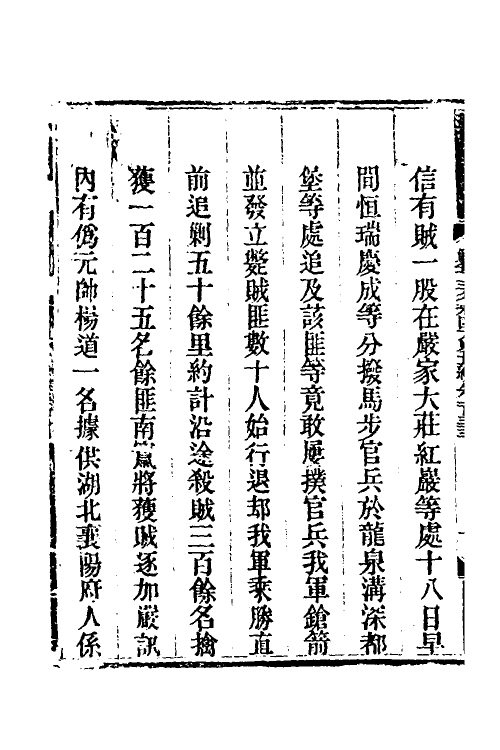 信有賊一股在嚴家大莊紅巖等處十八日早
間恒瑞慶成等分撥馬步官兵於龍泉溝深都
堡等處追及該匪等竟敢屢撲官兵我軍鎗箭
並發立斃賊匪數十人始行退却我軍乘勝直
前追剿五十餘里約計沿途殺賊三百餘名擒
獲一百二十五名餘匪南竄將獲賊逐加嚴訊
內有僞元帥楊道一名據供湖北襄陽府人係